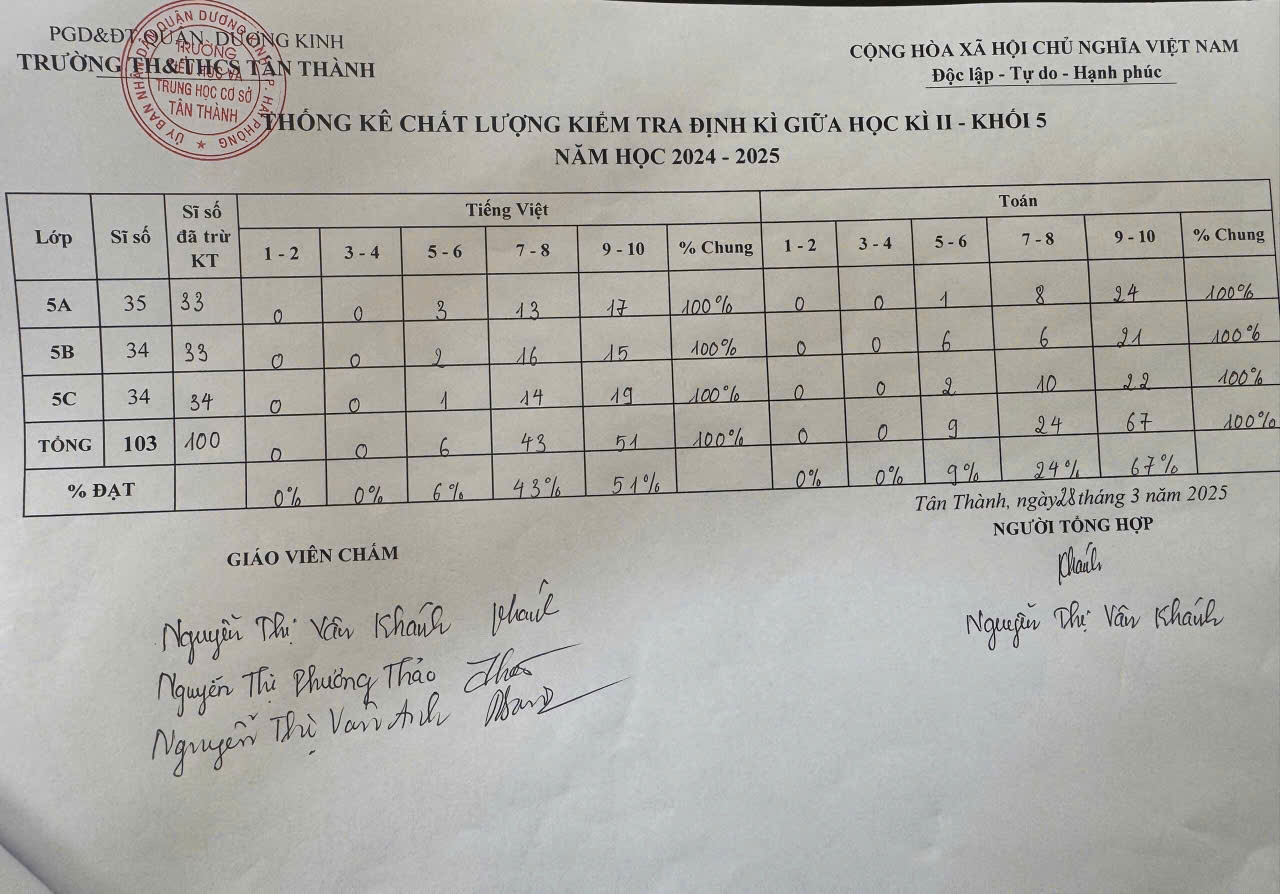 PGD&ĐT QUẬN DƯƠNG KINH
TRƯỜNG TH&THCS TÂN THÀNH
ỦY BAN NHÂN DÂN QUẬN DƯƠNG KINH P. HẢI PHÒNG
TRƯỜNG
TIỂU HỌC VÀ
TRUNG HỌC CƠ SỞ
TÂN THÀNH
CỘNG HÒA XÃ HỘI CHỦ NGHĨA VIỆT NAM
Độc lập - Tự do - Hạnh phúc
THỐNG KÊ CHẤT LƯỢNG KIỂM TRA ĐỊNH KÌ GIỮA HỌC KÌ II - KHỐI 5
NĂM HỌC 2024 - 2025
Lớp Sĩ số Sĩ số đã trừ KT Tiếng Việt Toán
1 - 2 3 - 4 5 - 6 7 - 8 9 - 10 % Chung 1 - 2 3 - 4 5 - 6 7 - 8 9 - 10 % Chung
5A 35 33 0 0 3 13 17 100% 0 0 1 8 24 100%
5B 34 33 0 0 2 16 15 100% 0 0 6 6 21 100%
5C 34 34 0 0 1 14 19 100% 0 0 2 10 22 100%
TỔNG 103 100 0 0 6 43 51 100% 0 0 9 24 67 100%
% ĐẠT 0% 0% 6% 43% 51% 0% 0% 9% 24% 67%
Tân Thành, ngày 28 tháng 3 năm 2025
GIÁO VIÊN CHẤM
NGƯỜI TỔNG HỢP
Khánh
Nguyễn Thị Vân Khánh Khánh
Nguyễn Thị Vân Khánh
Nguyễn Thị Phương Thảo
Nguyễn Thị Vân Anh